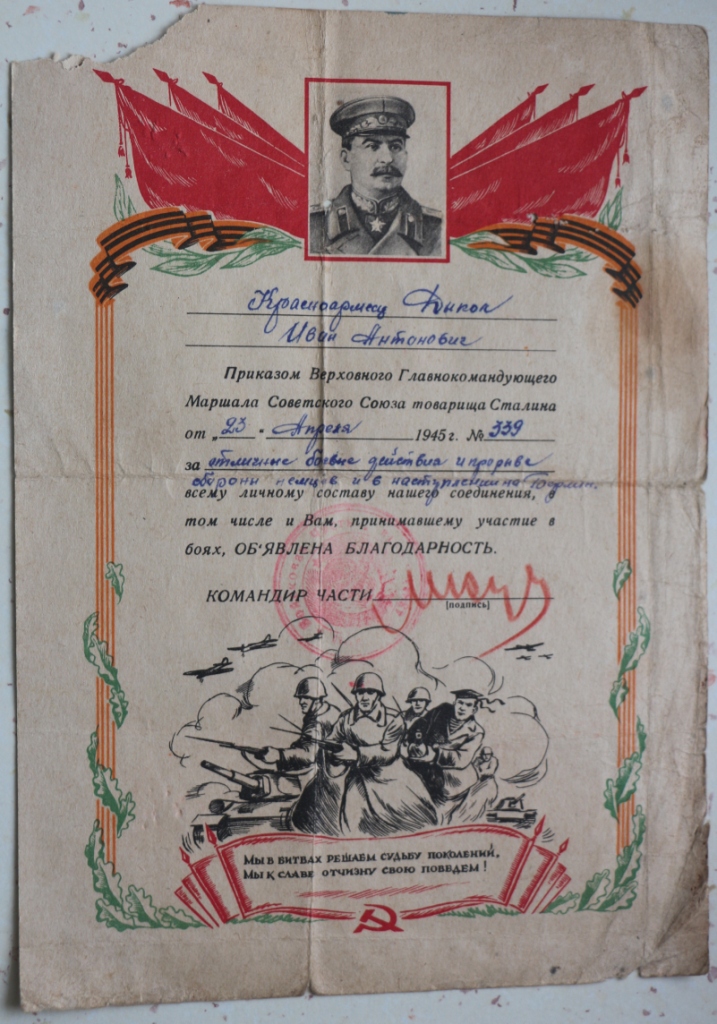 Красноармеец Дыкол
Иван Антонович
Приказом Верховного Главнокомандующего
Маршала Советского Союза товарища Сталина
от „23" Апреля 1945 г. № 339
за отличные боевые действия и прорыве
обороны немцев и в наступлении на Берлин.
всему личному составу нашего соединения, в
том числе и Вам, принимавшему участие в
боях, ОБ'ЯВЛЕНА БЛАГОДАРНОСТЬ.
КОМАНДИР ЧАСТИ
(подпись)
МЫ В БИТВАХ РЕШАЕМ СУДЬБУ ПОКОЛЕНИЙ,
МЫ К СЛАВЕ ОТЧИЗНУ СВОЮ ПОВЕДЕМ!